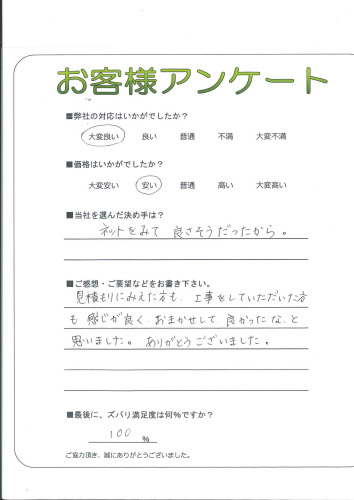 お客様アンケート
■弊社の対応はいかがでしたか?
大変良い 良い 普通 不満 大変不満
■価格はいかがでしたか?
大変安い 安い 普通 高い 大変高い
■当社を選んだ決め手は?
ネットをみて 良さそうだったから。
■ご感想・ご要望などをお書き下さい。
見積もりにみえた方も、工事をしていただいた方
も 感じが良く、おまかせして 良かったな、と
思いました。ありがとうございました。
■最後に、ズバリ満足度は何%ですか?
100 %
ご協力頂き、誠にありがとうございました。